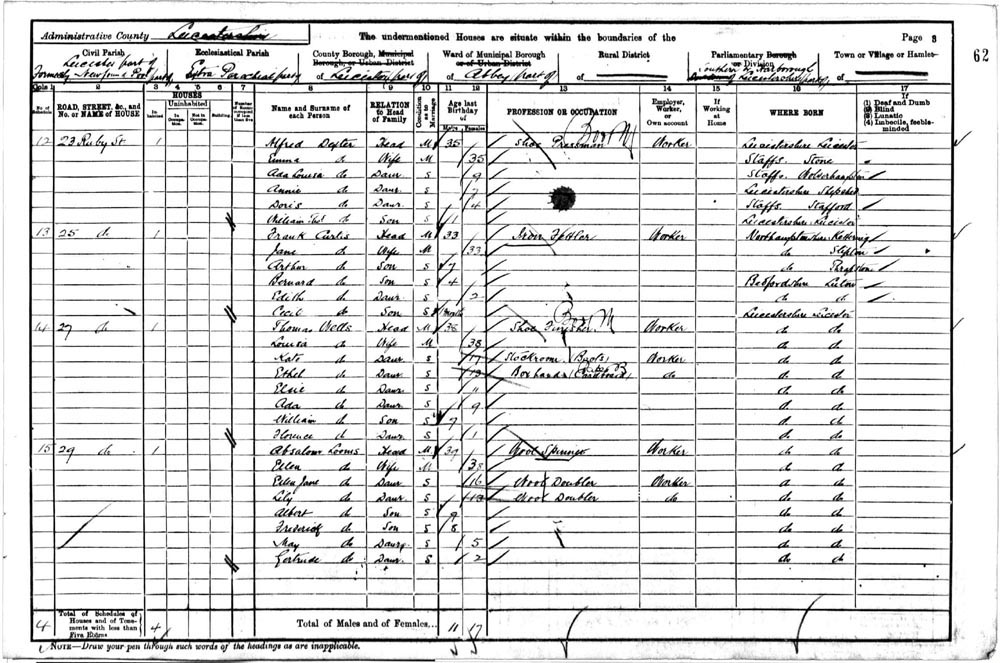 Administrative County Leicestershire The undermentioned Houses are situate within the boundaries of the Page 8
62
Civil Parish Ecclesiastical Parish County Borough, Municipal Borough, or Urban District Ward of Municipal Borough or of Urban District Rural District Parliamentary Borough or Division Town or Village or Hamlet
Leicester part of of Leicester part of of Abbey part of of of
Cols 1 2 3 4 5 6 7 8 9 10 11 12 13 14 15 16 17
No. of Schedule ROAD, STREET, &c., and No. or NAME of HOUSE HOUSES Inhabited Uninhabited In Occupation. Not in Occupation. Building Name and Surname of each Person RELATION to Head of Family Condition as to Marriage Age last Birthday of Males Females PROFESSION OR OCCUPATION Employer, Worker, or Own account If Working at Home WHERE BORN If (1) Deaf and Dumb (2) Blind (3) Lunatic (4) Imbecile, feeble-minded
12 23 Ruby St 1 Alfred Dexter Head M 35 Shoe Pressman Worker Leicestershire Leicester
Emma do Wife M 35 Staffs. Stone
Ada Louisa do Daur S 9 Staffs. Wolverhampton
Annie do Daur S 7 Leicestershire Shepshed
Doris do Daur S 4 Staffs. Stafford
William Thos do Son S 1 Leicestershire Leicester
13 25 do 1 Frank Curtis Head M 33 Iron Fettler Worker Northamptonshire Kettering
Jane do Wife M 33 do
Arthur do Son S 7 do Thrapstone
Bernard do Son S 4 Bedfordshire Luton
Edith do Daur S 2 do do
Cecil do Son S Leicestershire Leicester
14 27 do 1 Thomas Wells Head M 38 Shoe Finisher Worker do do
Louisa do Wife M 38 do do
Kate do Daur S 17 Stockroom (Boots) Worker do do
Ethel do Daur S 13 Boxhands (Cardboard) do do do
Elsie do Daur S 11 do do
Ada do Daur S 9 do do
William do Son S 7 do do
Florence do Daur S 1 do do
15 29 do 1 Absalom Looms Head M 39 Wool Spinner Worker do do
Ellen do Wife M 38 do do
Ellen Jane do Daur S 16 Wool Doubler Worker do do
Lily do Daur S 13 Wool Doubler do do do
Albert do Son S 9 do do
Frederick do Son S 8 do do
May do Daur S 5 do do
Gertrude do Daur S 2 do do
4 Total of Schedules of Houses and of Tenements with less than Five Rooms 4 Total of Males and of Females... 11 17
NOTE—Draw your pen through such words of the headings as are inapplicable.